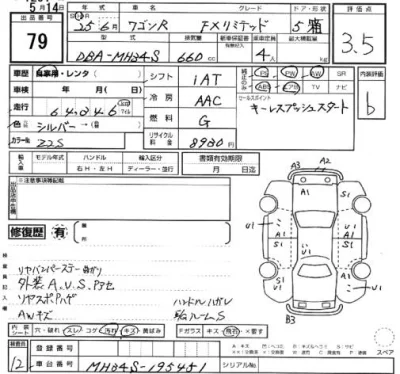 5月14日
出品番号 79
年 25年6月 車名 ワゴンR グレード FXリミテッド ドア・形状 5 箱
評価点 3.5
型式 DBA-MH34S 排気量 660cc 新車保証書 乗車定員 4人 最大積載量
車歴 自家用・レンタ シフト iAT
PS PW SW SR
ABS エアB TV ナビ
内装評価 b
車検 年 月(日) 冷房 AAC
セールスポイント
キーレスプッシュスタート
走行 64,346 km 燃料 G
色 シルバー →(色) リサイクル料金 8980円
カラーNo. Z2S
輸入車 モデル年式 ハンドル 右H・左H 輸入区分 ディーラー・並行
書類有効期限 月 日迄
※注意事項等記載
修復歴 有
A3 A2
A1 A1
S1 S1
U1 U1
A1 U1
S1 S1
U1
B3
リヤバンパーステー曲がり
外装A,U,S,P3セ
リヤスポPハゲ
AWキズ
ハンドルハガレ
S
内装シート 穴・破れ スレ コゲ 汚れ キズ 黄ばみ
Fガラス キズ 飛石・×要す
スペア
検査員 12
登録番号
車台番号 MH34S-195451
シリアルNo.